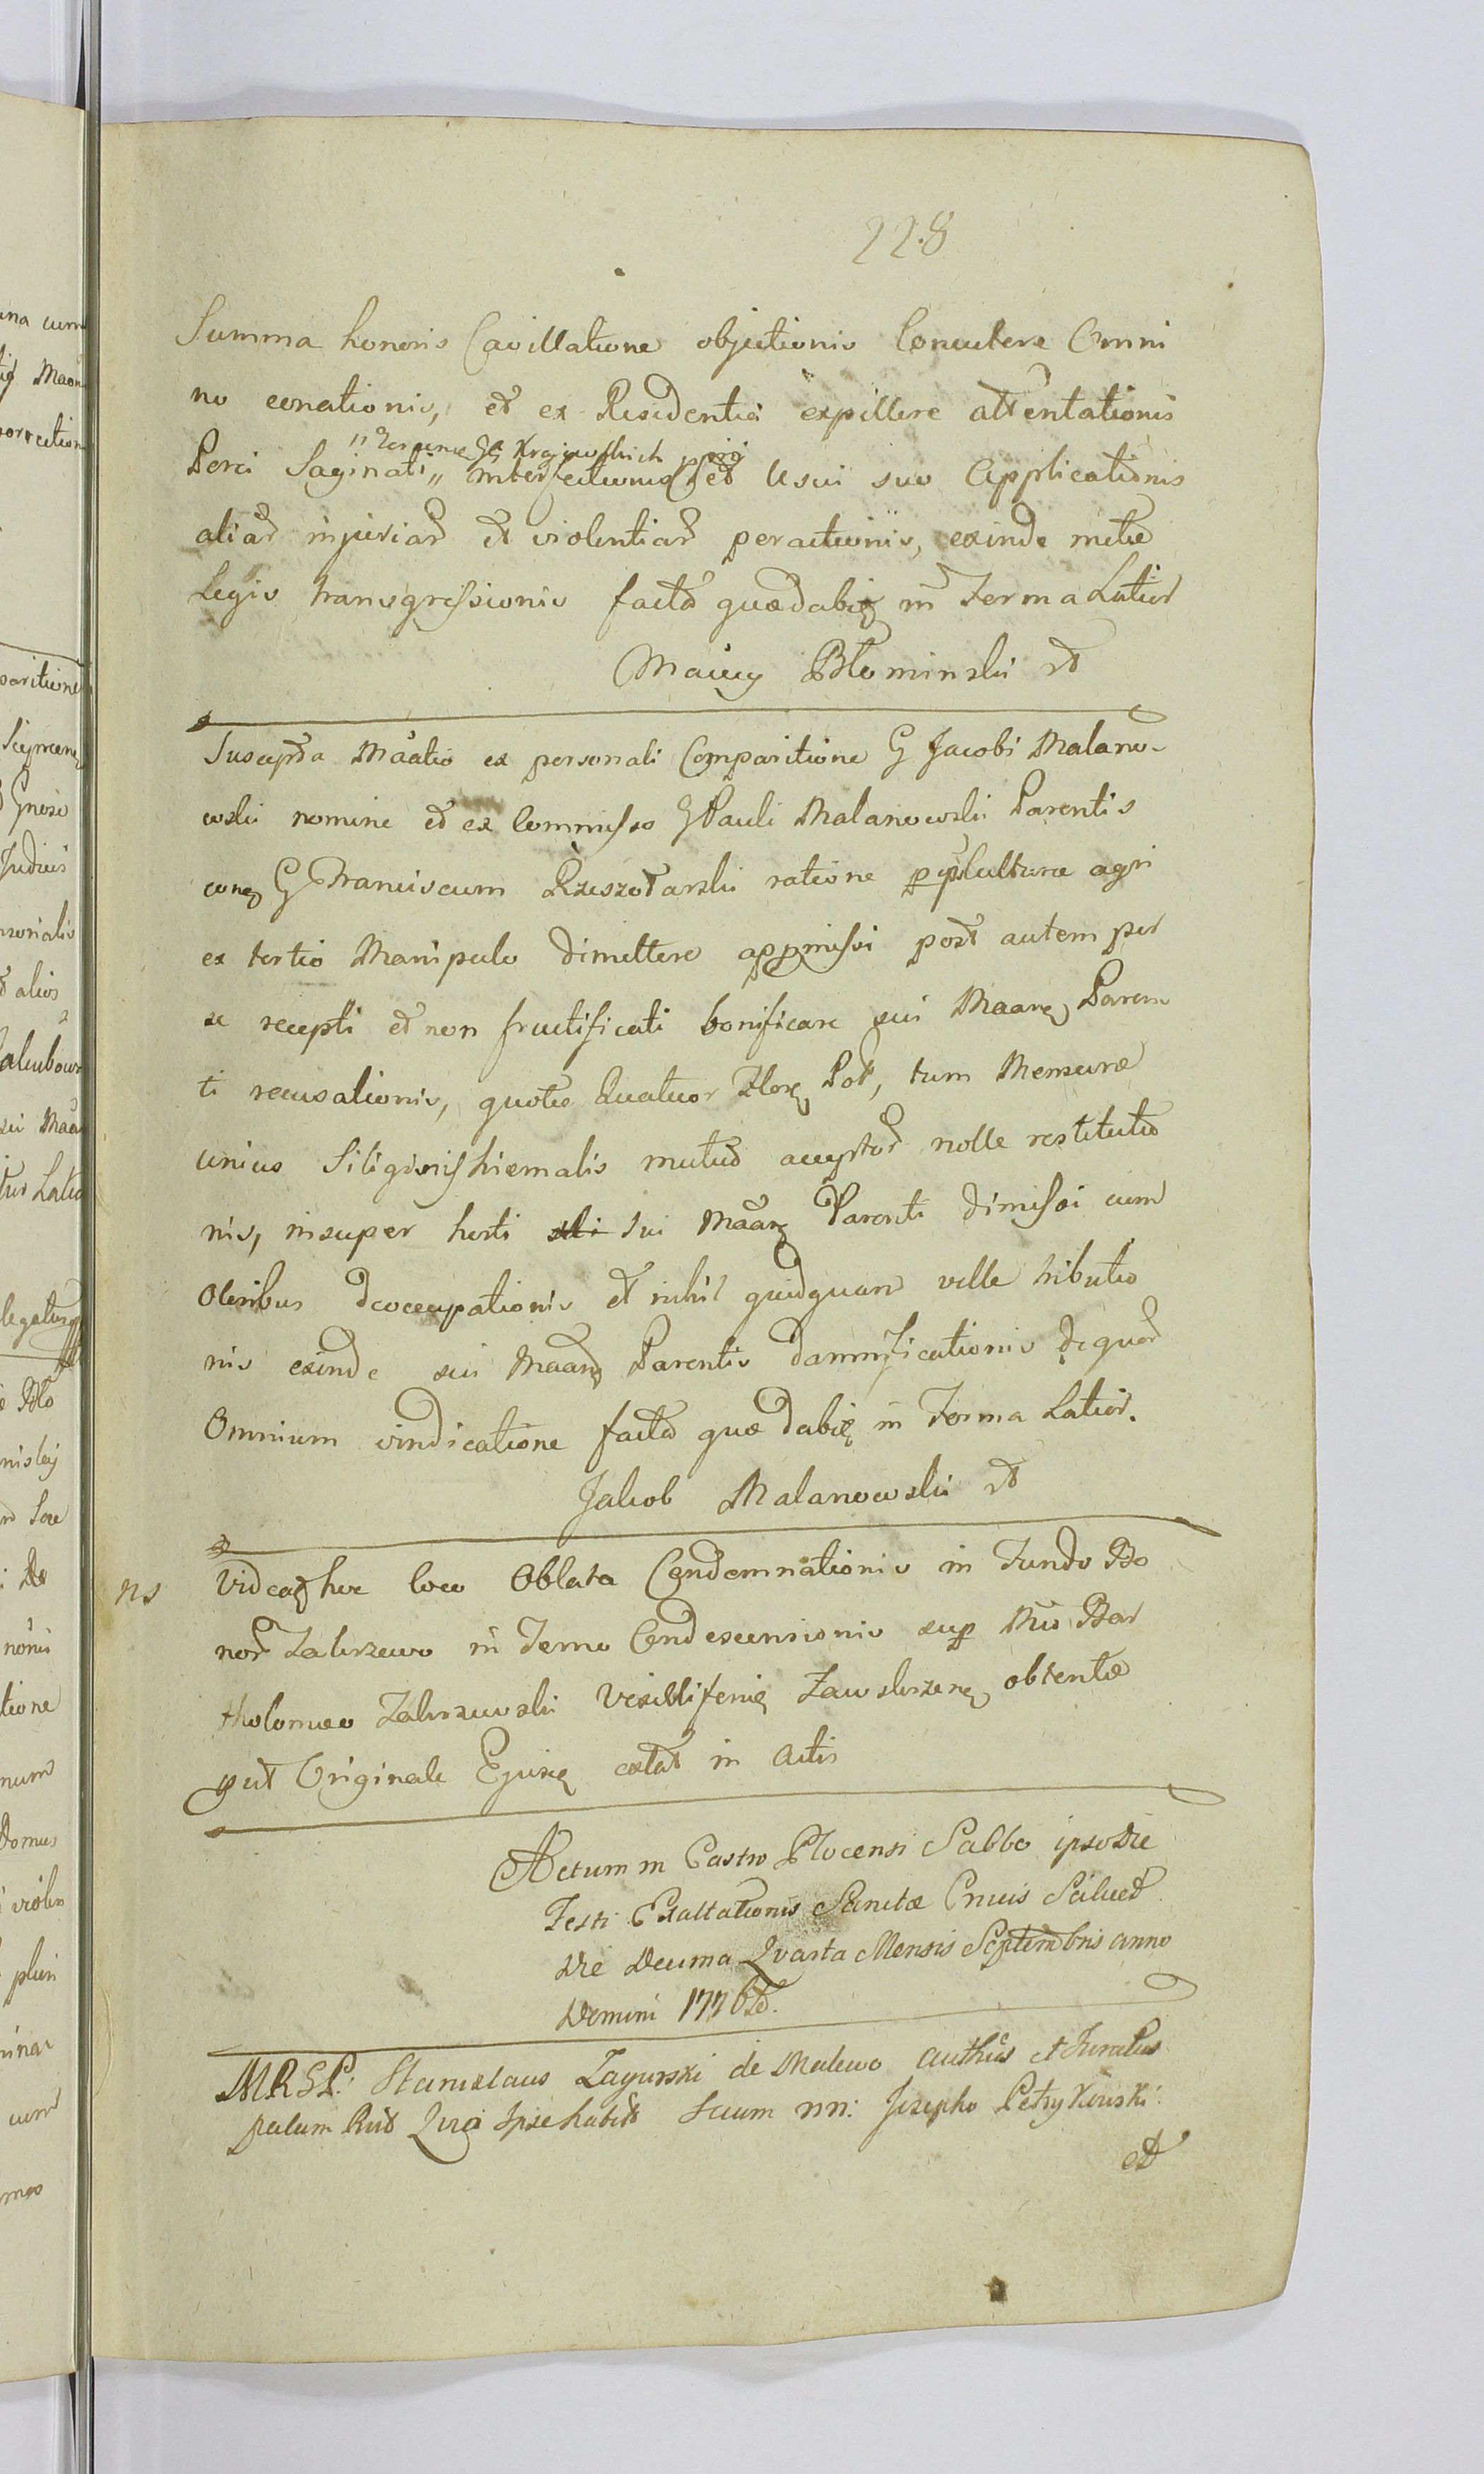 228
Summa honoris Cavillatione objectionis Concutere Omni
no conationis, et ex Residentia expellere attentationis
Porci Saginati „ interfectionis et Usui suo Applicationis
aliar injuriar et violentiar peractionis, exinde metæ
Legis transgressionis facta quædabiq in Forma Latior
Błominski
Suscepta Maatio ex personali Comparitione G Jacobi Malano-
wski nomine et ex Commisso G Pauli Malanowski Parentis
conq G Franciscum Rzeszotarski ratione culturæ agri
ex tertio Manipulo dimittere appmissi post autem per
se recepti et non fructificati bonificare sui Maanq Paren
ti recusationis, quotæ Quatuor Flor Pol, tum Mensuræ
unius Siliginis hiemalis mutuo acceptor nolle restitutio
nis, insuper horti sui Maanq Parenti dimissi cum
Oleribus deoccupationis et nihil quidquam velle tributio
nis exinde sui Maanq Parentis damnificationis de quor
Omnium vindicatione facta quædabiq in Forma Latior.
Jakob Malanowski
ns Videaq hoc loco Oblata Condemnationis in Fundo Bo
nor Zakrzewo in Termo Condescensionis sup Bar
tholomæo Zakrzewski Vexilliferiq Zawskrzenq obtentæ
put Originale Ejusq extat in Actis
Actum in Castro Plocensi Sabbo ipso die
Festi Exaltationis Sanctæ Crucis Scilicet
Die Decima Quarta Mensis Septembris anno
Domini 1776to.
MRGP: Stanislaus Zagurski de Malewo et Juratus
palam Ipse habuit suum nn: Josepho Petrykowski